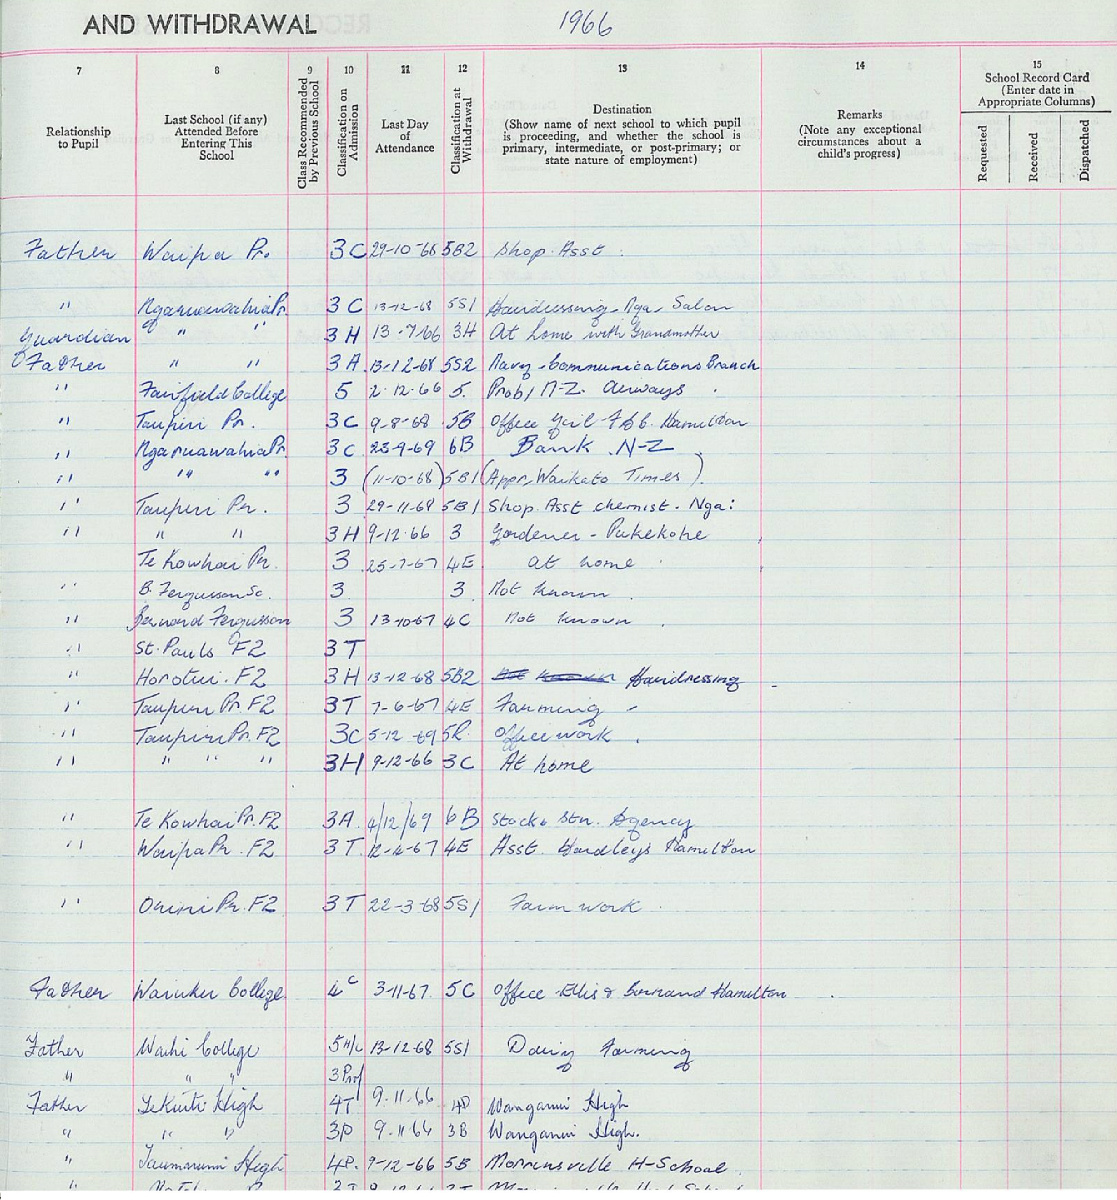 AND WITHDRAWAL 1966
7 8 9 10 11 12 13 14 15
Relationship to Pupil
Last School (if any) Attended Before Entering This School
Class Recommended by Previous School
Classification on Admission
Last Day of Attendance
Classification at Withdrawal
Destination
(Show name of next school to which pupil is proceeding, and whether the school is primary, intermediate, or post-primary; or state nature of employment)
Remarks
(Note any exceptional circumstances about a child's progress)
School Record Card
(Enter date in Appropriate Columns)
Requested
Received
Dispatched
Father Waipa Pr. 3C 29-10-68 5B2 Shop Asst.
" Ngaruawahia Pr. 3C 13-12-68 5S1 Hairdressing - Nga. Salon
Guardian " " 3H 13-7/66 3H At home with Grandmother
Father " " 3A 13-12-68 5S2 Navy - Communications Branch
" Fairfield College 5 2-12-66 5. Prob/ N-Z. Airways
" Taupiri Pr. 3C 9-8-68 5B Office Girl Hamilton
" Ngaruawahia Pr. 3C 23-9-69 6B Bank N-Z
" " " 3 (11-10-68) 5B1 (Appr. Waikato Times)
" Taupiri Pr. 3 29-11-68 5B1 Shop Asst chemist. Nga:
" " " 3H 9-12-66 3 Gardener - Pukekohe
Te Kowhai Pr. 3 25-7-67 4E at home
" B. Fergusson Sc. 3 3 Not known.
" Bernard Fergusson 3 13-10-67 4C Not known.
" St. Pauls F2 3T
" Horotiu. F2 3H 13-12-68 5B2 Hairdressing
" Taupiri Pr F2 3T 7-6-67 4E Farming -
" Taupiri Pr. F2 3C 5-12-69 Office work.
" " " " 3H 9-12-66 3C At home
" Te Kowhai Pr. F2 3A 4/12/69 6B Stock & Stn. Agency
" Waipa Pr. F2 3T 12-4-67 4E Asst. Hamilton
" Orini Pr. F2 3T 22-3-68 5S1 Farm work
Father College 4C 3-11-67 5C Office Ellis & Burnand Hamilton
Father Waihi College 13-12-68 5S1 Dairy Farming
" " "
Father Te Kuiti High 4T 9-11-66 4P Wanganui High
" " " 3P 9-11-66 3B Wanganui High.
" Taumarunui High 4P. 9-12-66 5B Morrinsville H-School.